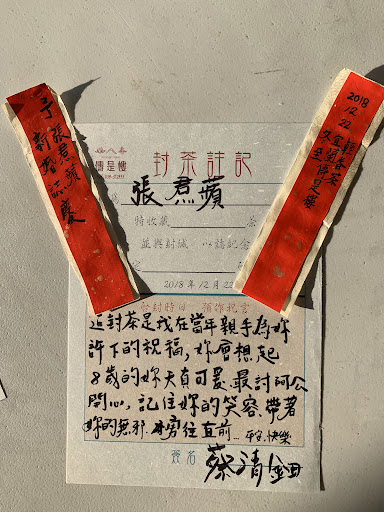 予張焄蘋
新婚誌慶
2018
12.22
冬至
封茶註記
僐是樓
張焄蘋
特收藏 茶
並與封緘 以誌記念
2018年12月22
啟封時日 預作祝言
這封茶是我在當年親手為妳
許下的祝福,妳會想起
8歲的妳天真可愛.最討阿公
開心,記住妳的笑容.帶著
妳的無邪.勇往直前...平安.快樂
簽名
蔡清